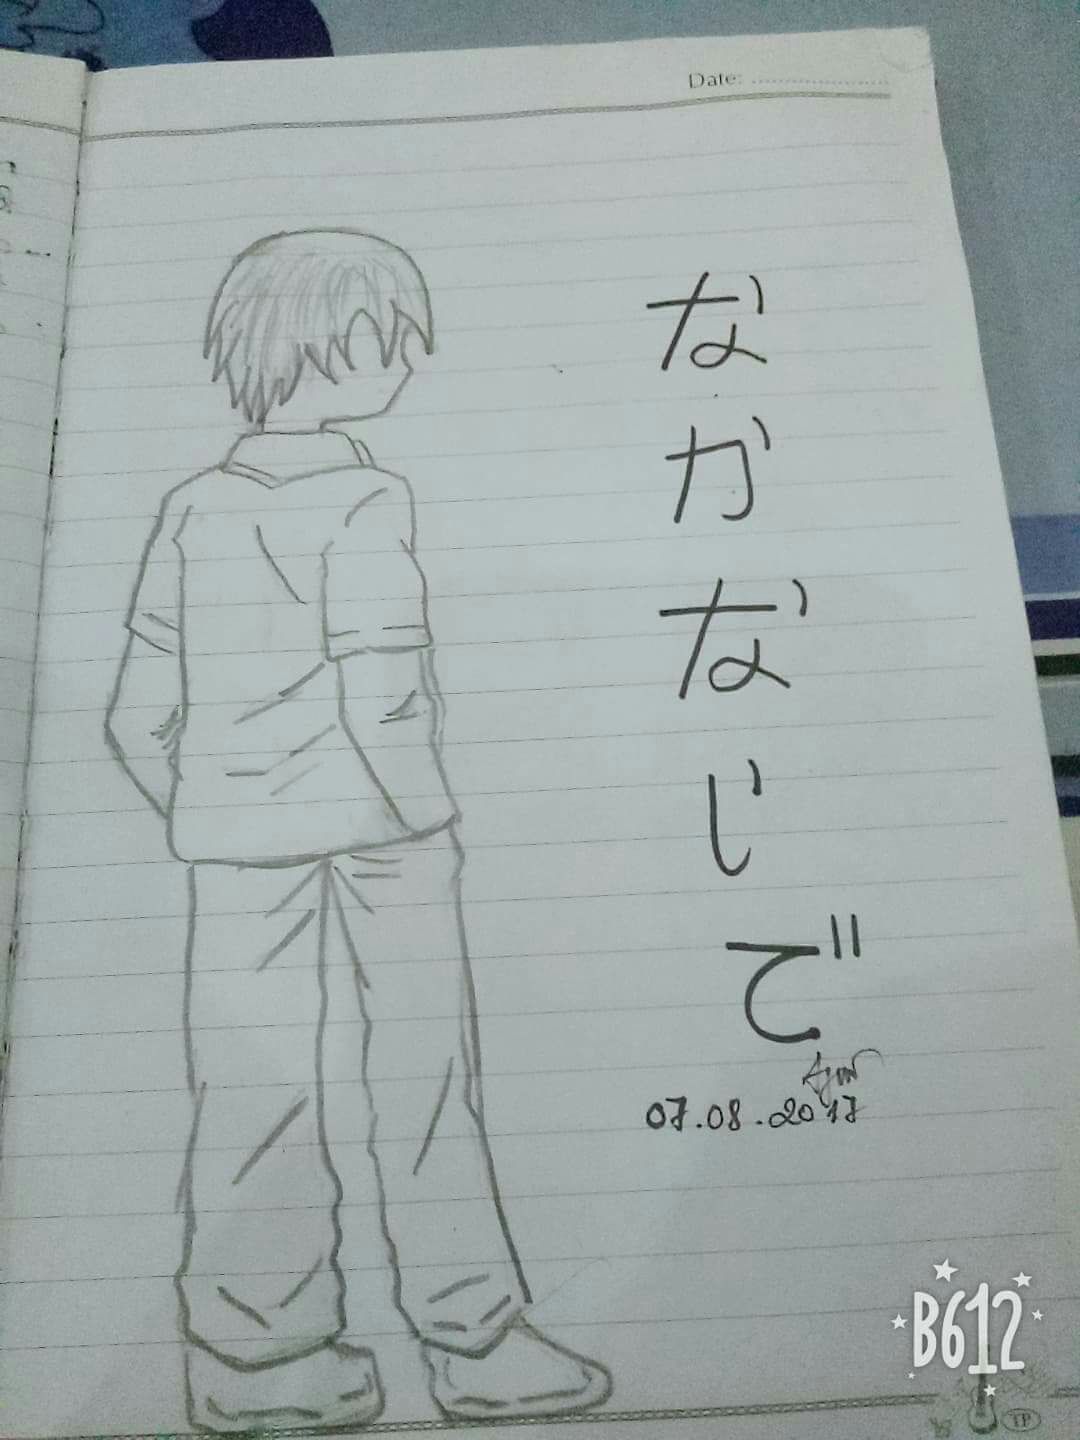 Date:
な
か
な
い
で
07.08.2017
B612
TP